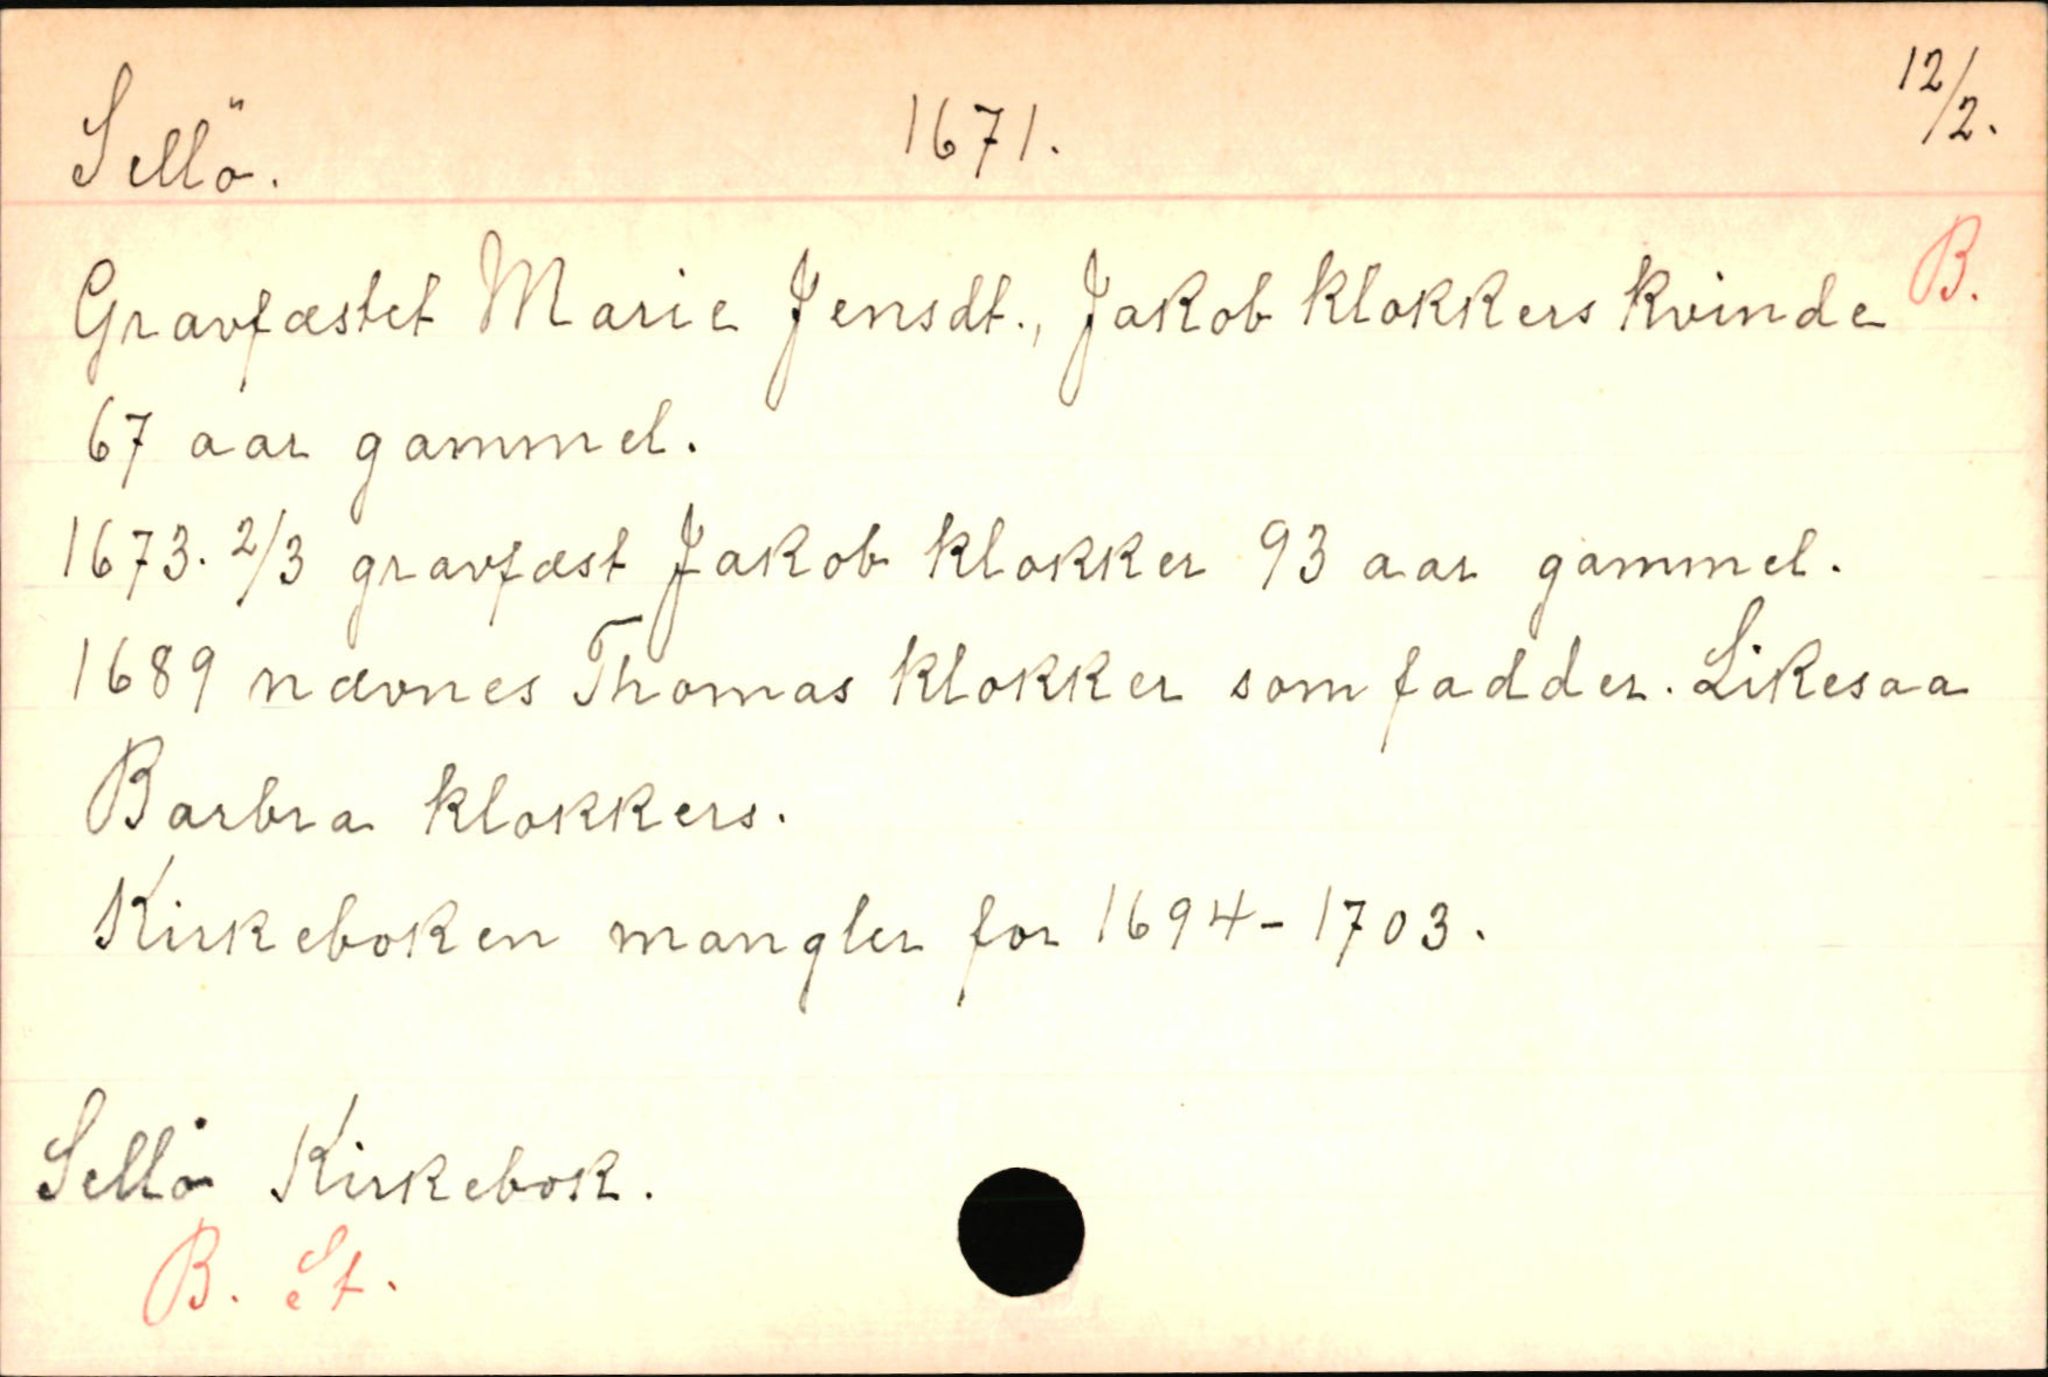 Sellö. 1671. 12/2.
B.
Gravfæstet Marie Jensdt., Jakob klokkers kvinde
67 aar gammel.
1673. 2/3 gravfæst Jakob klokker 93 aar gammel.
1689 nævnes Thomas klokker som fadder. Likesaa
Barbra klokkers.
Kirkeboken mangler for 1694-1703.
Sellö Kirkebok.
B. St.